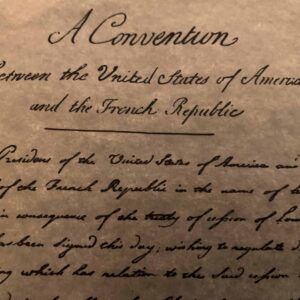 A Convention
between the United States of America
and the French Republic
President of the United States of America and
of the French Republic in the name of the
in consequence of the treaty of cession of Lou
has been signed this day; wishing to regulate d
ng which has relation to the said cession